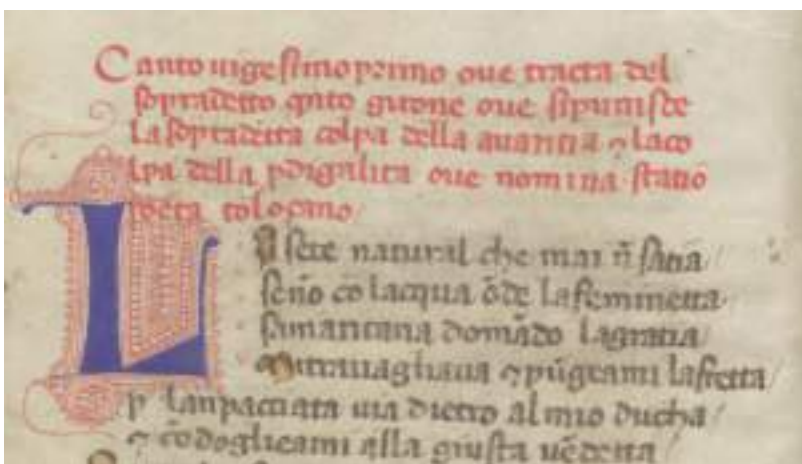 Canto uigesimoprimo oue tracta del
sopradetto qnto girone oue sipunisce
la sopradetta colpa della auaritia ⁊ laco
lpa della pdigalita oue nomina statio
poeta tolosano
LA sete natural che mai nō satia
senō cō lacqua ōde la femmetta
samaritana domādo lagratia
Mi trauagliaua ⁊ pūgeami lafretta
p lanpacciata uia dietro almio ducha
⁊ cōdoglieami alla giusta uēdetta